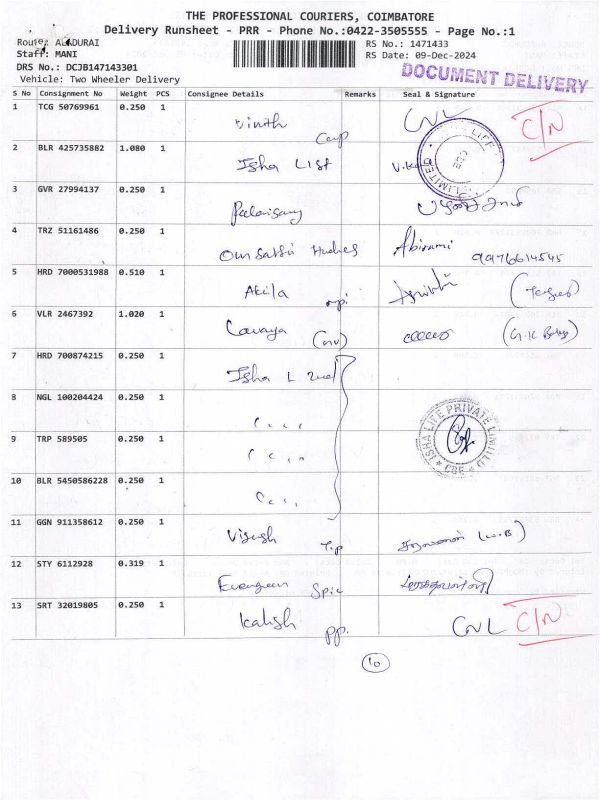 THE PROFESSIONAL COURIERS, COIMBATORE
Delivery Runsheet - PRR - Phone No.:0422-3505555 - Page No.:1
Route: ALADURAI RS No.: 1471433
Staff: MANI RS Date: 09-Dec-2024
DRS No.: DCJB147143301 DOCUMENT DELIVERY
Vehicle: Two Wheeler Delivery
S No Consignment No Weight PCS Consignee Details Remarks Seal & Signature
1 TCG 50769961 0.250 1 Vinith CNL C/N
2 BLR 425735882 1.080 1 Isha List
3 GVR 27994137 0.250 1
4 TRZ 51161486 0.250 1 Om Sakthi Abirami 9976614545
5 HRD 7000531988 0.510 1 Akila
6 VLR 2467392 1.020 1 (nv)
7 HRD 700874215 0.250 1 Isha L
8 NGL 100204424 0.250 1
9 TRP 589505 0.250 1
ISHA LIFE PRIVATE LIMITED
CBE
10 BLR 5450586228 0.250 1
11 GGN 911358612 0.250 1 T.p சரவணன் (W.B)
12 STY 6112928 0.319 1 Evergreen Spic
13 SRT 32019805 0.250 1 Kailish pp. CNL C/N
10